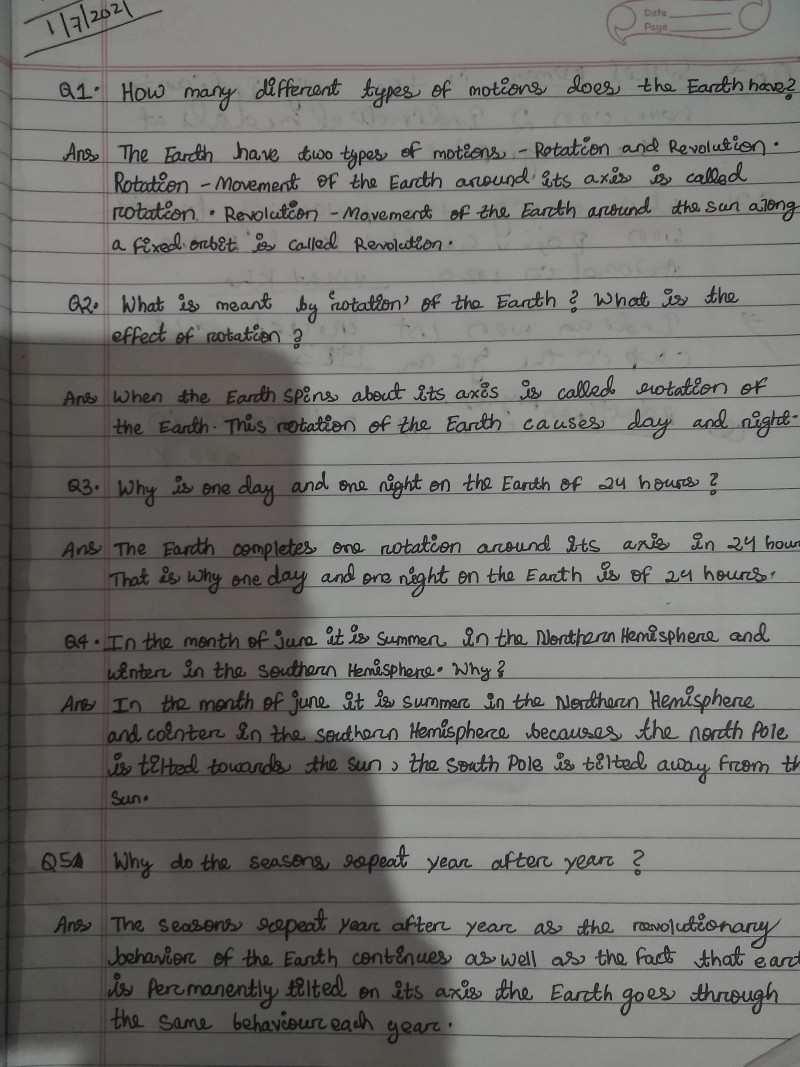 1/7/2021
Date
Page
Q1. How many different types of motions does the Earth have?
Ans The Earth have two types of motions - Rotation and Revolution.
Rotation - Movement of the Earth around its axis is called
rotation. Revolution - Movement of the Earth around the sun along
a fixed orbit is called Revolution.
Q2. What is meant by 'rotation' of the Earth? What is the
effect of rotation?
Ans When the Earth spins about its axis is called rotation of
the Earth. This rotation of the Earth causes day and night.
Q3. Why is one day and one night on the Earth of 24 hours?
Ans The Earth completes one rotation around its axis in 24 hour
That is why one day and one night on the Earth is of 24 hours.
Q4. In the month of june it is summer in the Northern Hemisphere and
winter in the southern Hemisphere. Why?
Ans In the month of june it is summer in the Northern Hemisphere
and winter in the southern Hemisphere becauses the north Pole
is tilted towards the sun, the south Pole is tilted away from th
sun.
Q5 Why do the seasons repeat year after year?
Ans The seasons repeat year after year as the revolutionary
behavior of the Earth continues as well as the fact that eard
is Permanently tilted on its axis the Earth goes through
the same behaviour each year.